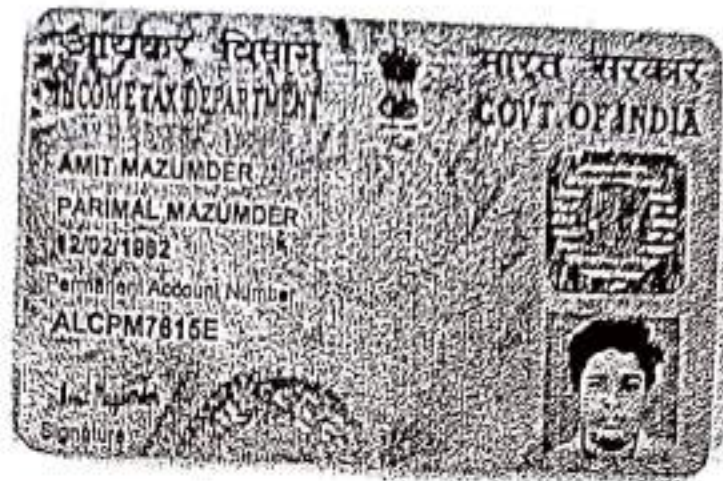 आयकर विभाग
भारत सरकार
INCOME TAX DEPARTMENT
GOVT OF INDIA
AMIT MAZUMDER
PARIMAL MAZUMDER
12/02/1982
Permanent Account Number
ALCPM7615E
Signature